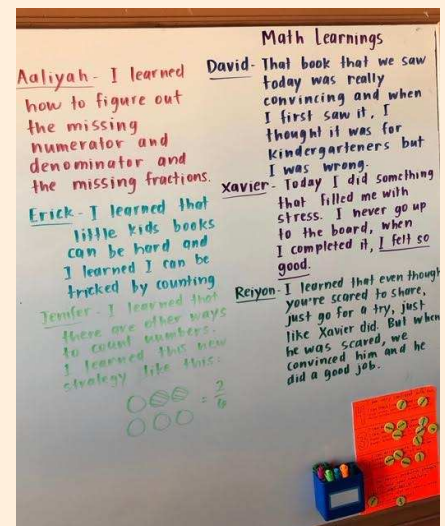 Math Learnings
Aaliyah - I learned
how to figure out
the missing
numerator and
denominator and
the missing fractions.
Erick - I learned that
little kids books
can be hard and
I learned I can be
tricked by counting
Jenifer - I learned that
there are other ways
to count numbers.
I learned this new
strategy like this:
= 2/6
David - That book that we saw
today was really
convincing and when
I first saw it, I
thought it was for
kindergarteners but
I was wrong.
Xavier - Today I did something
that filled me with
stress. I never go up
to the board, when
I completed it, I felt so
good.
Reiyon - I learned that even though
you're scared to share,
just go for a try, just
like Xavier did. But when
he was scared, we
convinced him and he
did a good job.